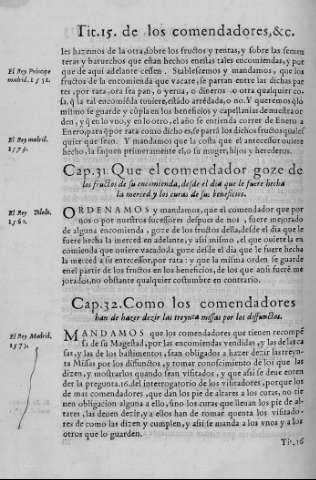 Tit.15. de los comendadores,&c.
les hazemos de la otra, sobre los fructos y rentas, y sobre las semen
teras y baruechos que estan hechos en estas tales encomiendas, y por
El Rey Principe
que de aqui adelante cessen. Stablescemos y mandamos, que los
madrid. 1552.
fructos de la encomienda que vacare, se partan entre las dichas par
tes, por rata, ora sea pan, o yerua, o dineros o otra qualquier co-
sa, q̃ la tal encomiẽda touiere, estãdo arrẽdada, o no. Y queremos q̃ lo
mismo se guarde y cũplan los beneficios y capellanias de nuestra or
den, y q̃ en lo vno, y en lo otro, el año se entienda correr de Enero a
Enero, para q̃ por rata como dicho es, se parta los dichos fructos quales
El Rey madrid.
quier que sean. Y mandamos que la costa que el antecessor ouiere
1573.
hecho, la saquen primeramente el, o su muger, hijos y herederos.
Cap.31. Que el comendador goze de
los fructos de su encomienda, desde el dia que le fuere hecha
la merced y los curas de sus beneficios.
El Rey Toledo.
ORDENAMOS y mandamos, que el comendador que por
1560.
nos o por nuestros successores despues de nos, fuere mejorado
de alguna encomienda, goze de los fructos della, desde el dia que le
fuere hecha la merced en adelante, y assi mismo, el que ouiere la en
comienda que ouiere vacado, la goze desde el dia que le fuere hecha
la merced a su antecessor, por rata: y que la misma orden se guarde
en el partir de los fructos en los beneficios, de los que ansi fueren me
jorados, no obstante qualquier costumbre en contrario.
Cap.32. Como los comendadores
han de hazer dezir las treynta missas por los diffunctos.
El Rey Madrid.
MANDAMOS que los comendadores que tienen recompẽ
1573.
sas de su Magestad, por las encomiendas vendidas, y las de las ca
sas, y las de los bastimentos, sean obligados a hazer dezir las treyn-
ta Missas por los diffunctos, y tomar conoscimiento de los que las
dizen, y mostrarlos quando sean visitados, y que assi se deue enten
der la pregunta.16. del interrogatorio de los vibradores, porque los
de mas comendadores, que dan los pie de altares a los curas, no tie
nen obligacion alguna a ello, sino los curas que lleuan los pie de al-
tares, las deuen dezir, y a ellos han de tomar quenta los visitado-
res de como las dizen y cumplen, y assi se manda a los vnos y a los
otros que lo guarden.
Tit.16